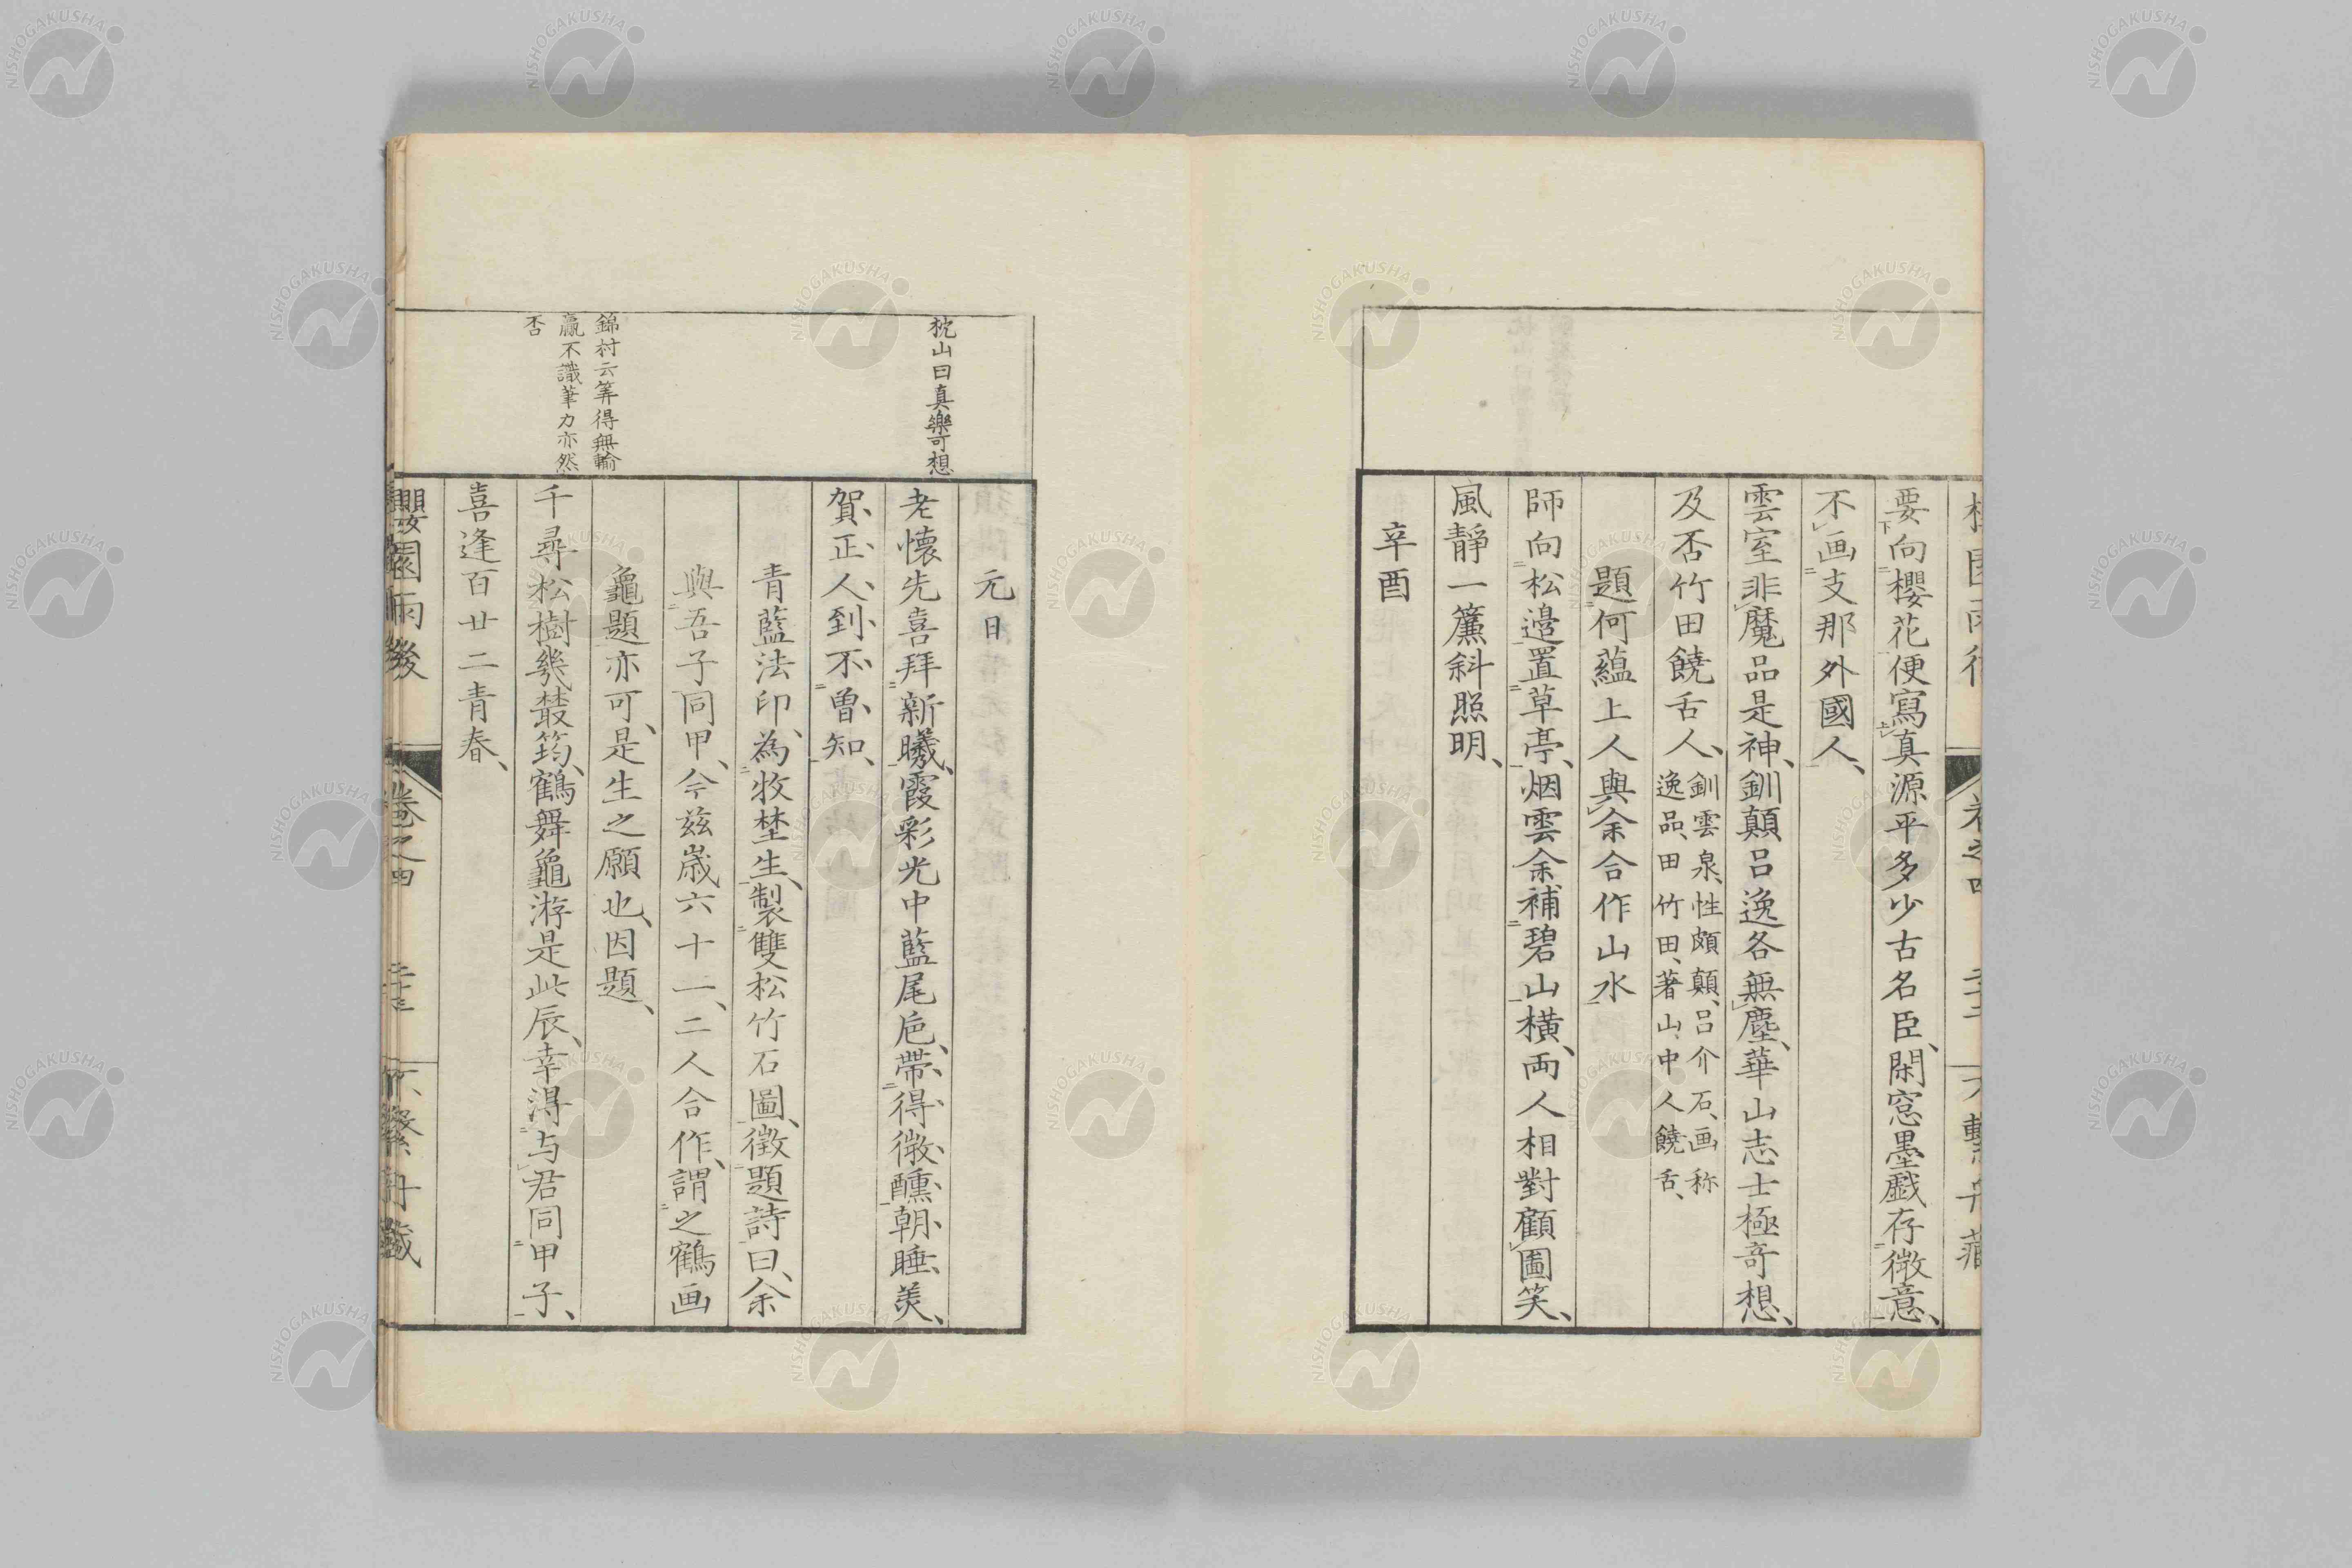 要向櫻花便寫真源平多少古名臣、閑窓墨戯存微意、
不画支那外國人、
雲室非魔品是神、釧顛呂逸各無塵、華山志士極奇想、
及否竹田饒舌人、釧雲泉、性頗顛、呂介石、画称
逸品、田竹田、著山中人饒舌、
題何蘊上人與余合作山水
師向松邉置草亭、烟雲余補碧山横、両人相對顧圖笑、
風靜一簾斜照明、
辛酉
元日
枕山曰真樂可想
老懐先喜拜新曦、霞彩光中藍尾巵、帶得微醺朝睡羙、
賀正人到不曽知、
青藍法印、為牧埜生、製雙松竹石圖、徴題詩曰、余
與吾子同甲、今玆歳六十一、二人合作、謂之鶴画
龜題亦可、是生之願也、因題、
錦村云筭得無輸
贏不識筆力亦然
否
千尋松樹幾叢筠、鶴舞龜游是此辰、幸得与君同甲子、
喜逢百廿二青春、
櫻園雨後 卷之四 不繋舟藏
NISHOGAKUSHA